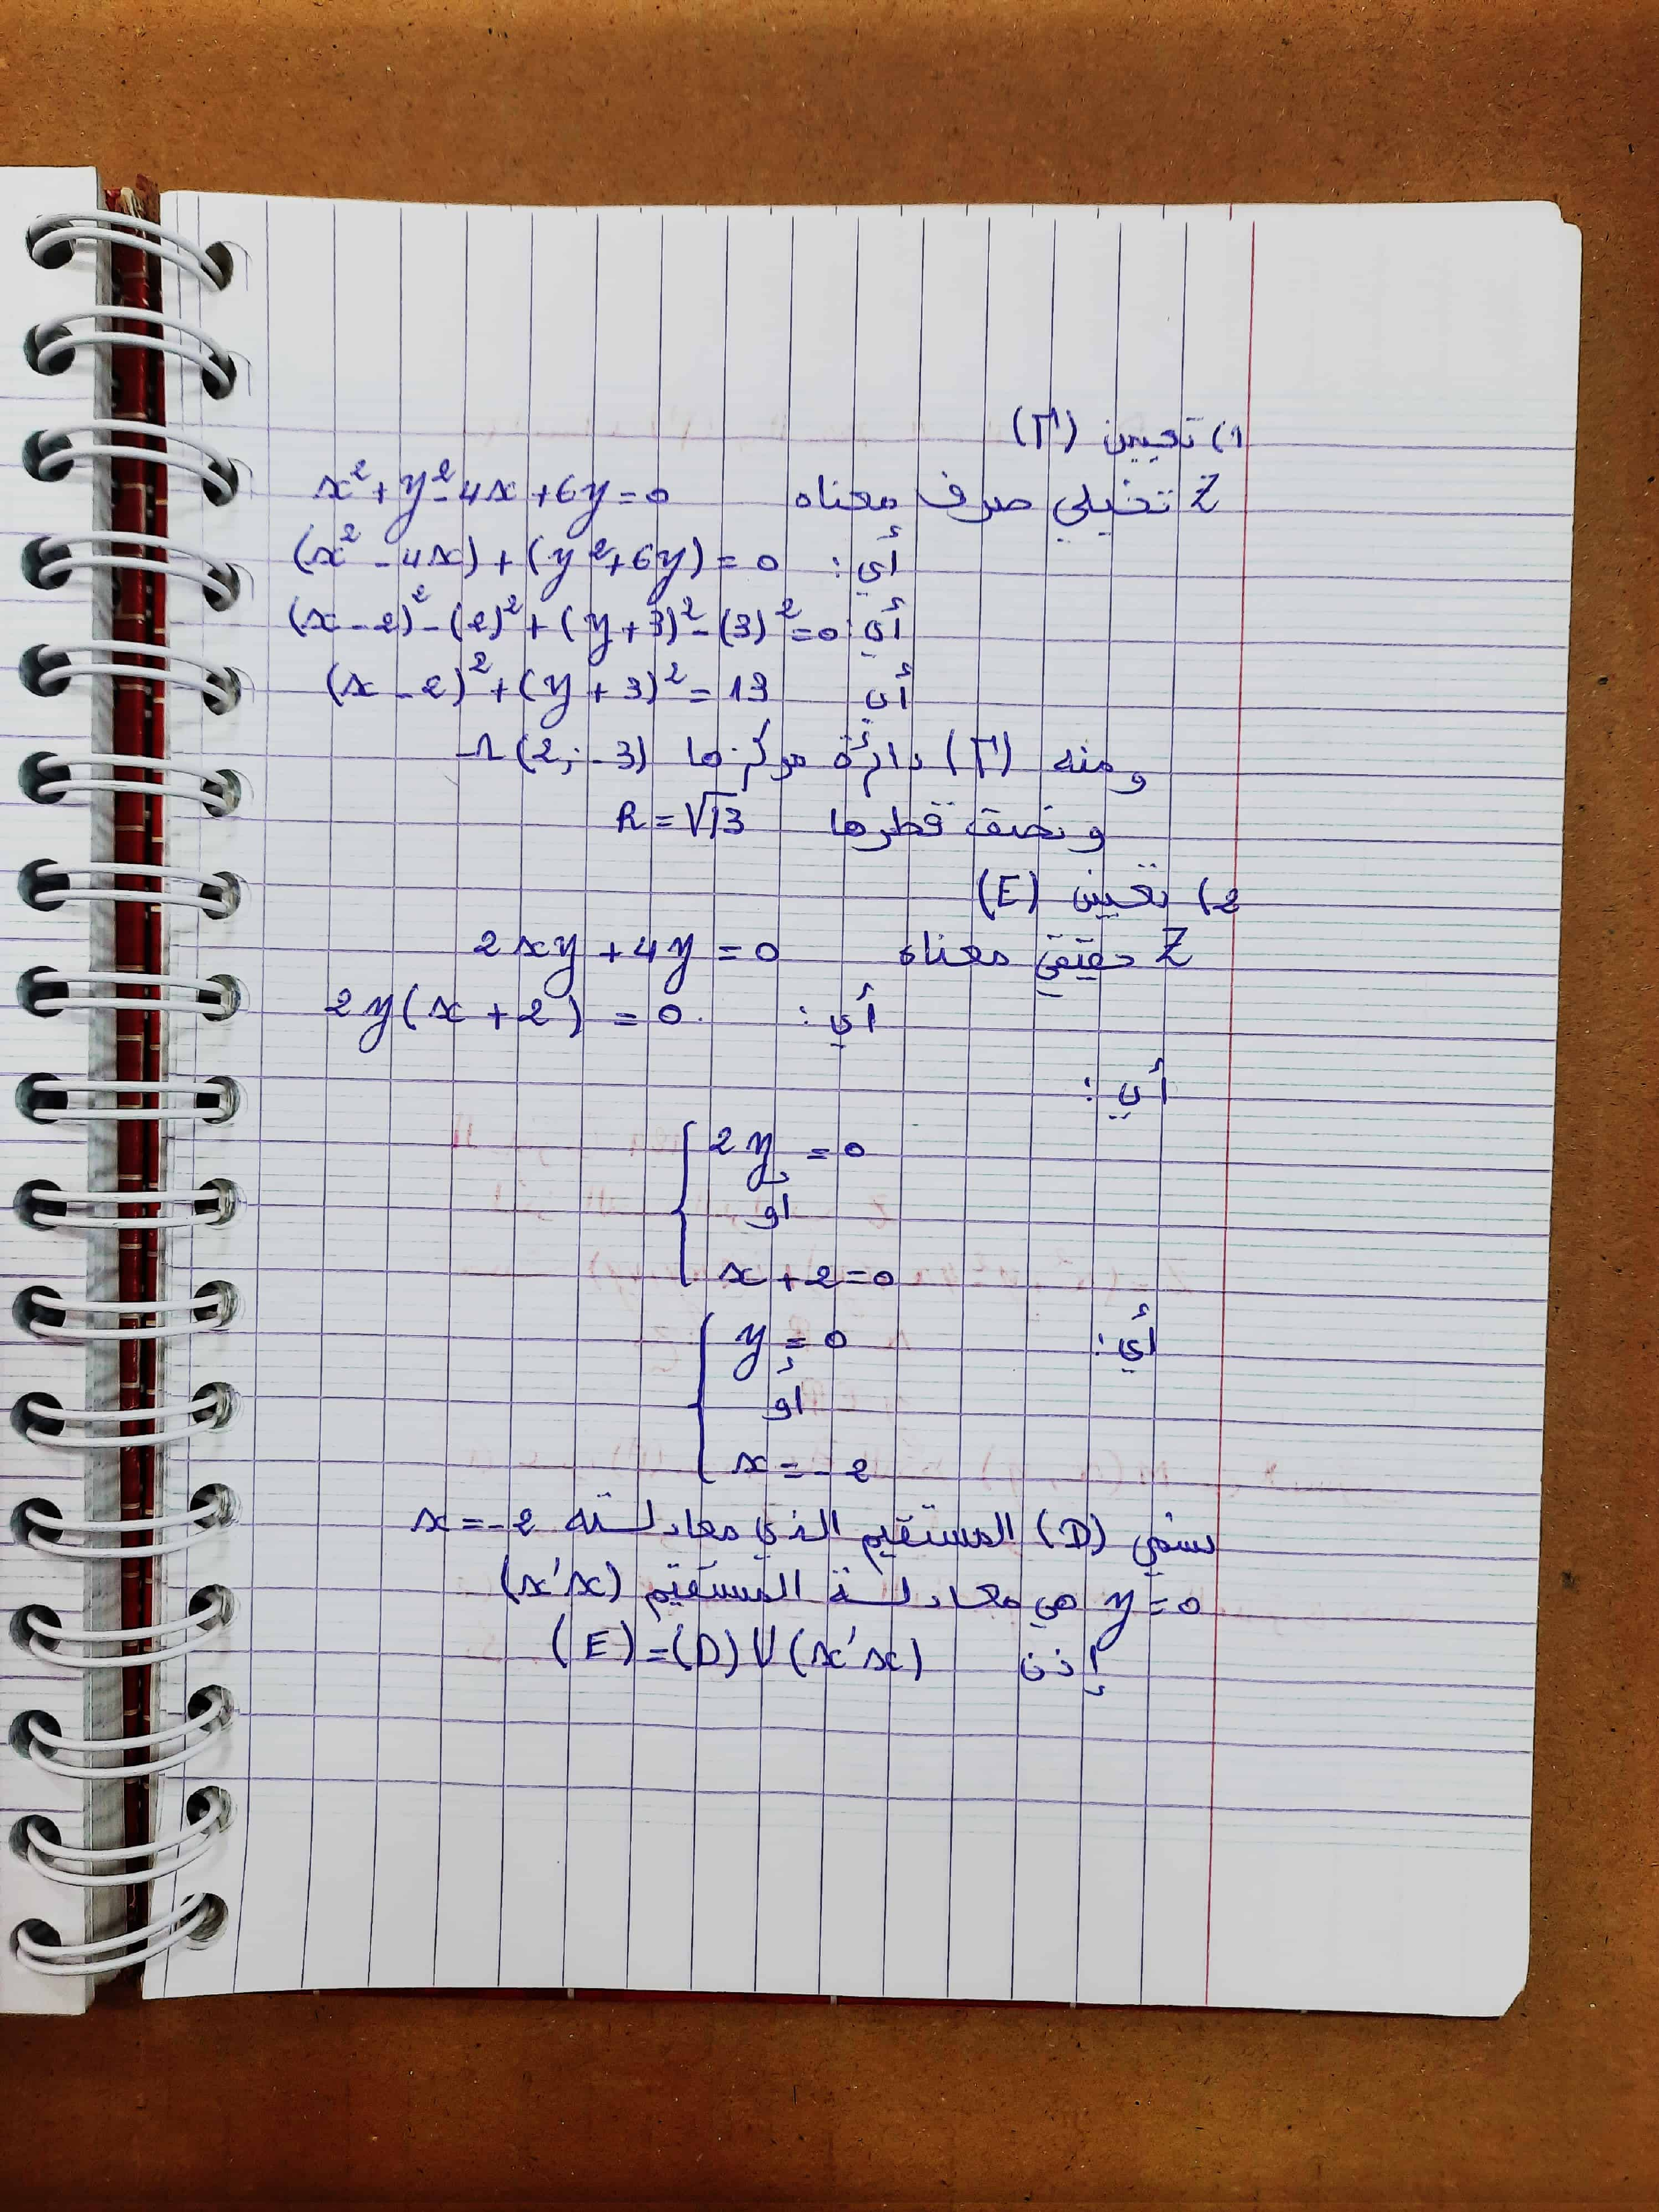 1) تعيين (Γ)
Z تخيلي صرف معناه x²+y²-4x+6y=0
أي: (x²-4x)+(y²+6y)=0
أي: (x-2)²-(2)²+(y+3)²-(3)²=0
أي (x-2)²+(y+3)²=13
ومنه (Γ) دائرة مركزها Ω(2;-3)
ونصف قطرها R=√13
2) تعيين (E)
Z حقيقي معناه 2xy+4y=0
أي: 2y(x+2)=0
أي:
{ 2y=0
أو
x+2=0
أي: { y=0
أو
x=-2
نسمي (D) المستقيم الذي معادلته x=-2
y=0 هي معادلة المستقيم (x'x)
إذن (E)=(D)∪(x'x)